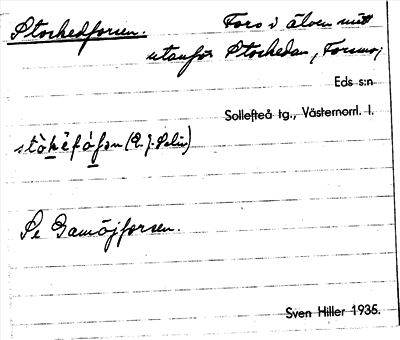 Storhedforsen. Fors i älven mitt
utanför Storhedan, Forsmo,
Eds s:n
Sollefteå tg., Västernorrl. l.
(E. J. Selin)
Se Gamöjforsen.
Sven Hiller 1935.